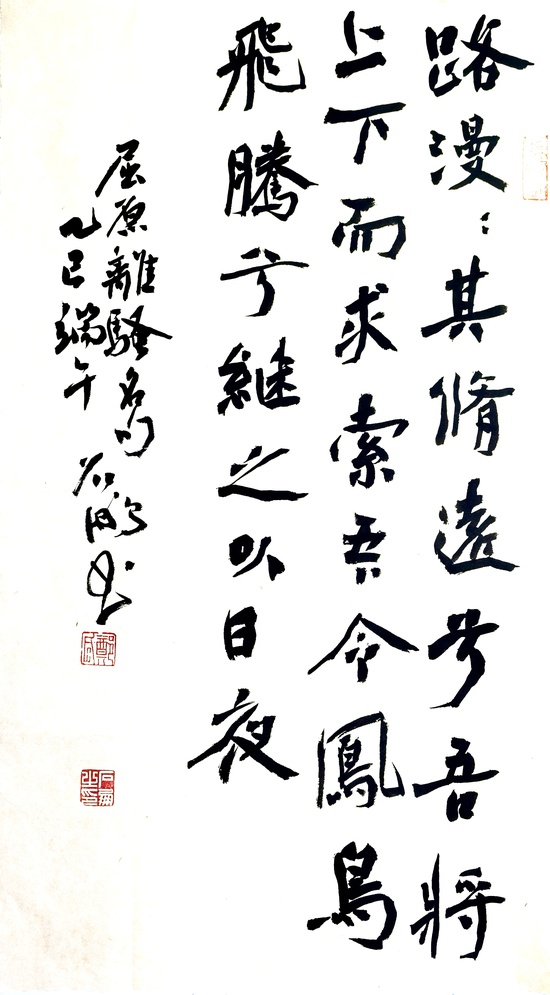 路漫〻其脩遠兮吾將
上下而求索吾令鳳鳥
飛騰兮繼之以日夜
屈原離騷名句
乙巳端午
石鵬書